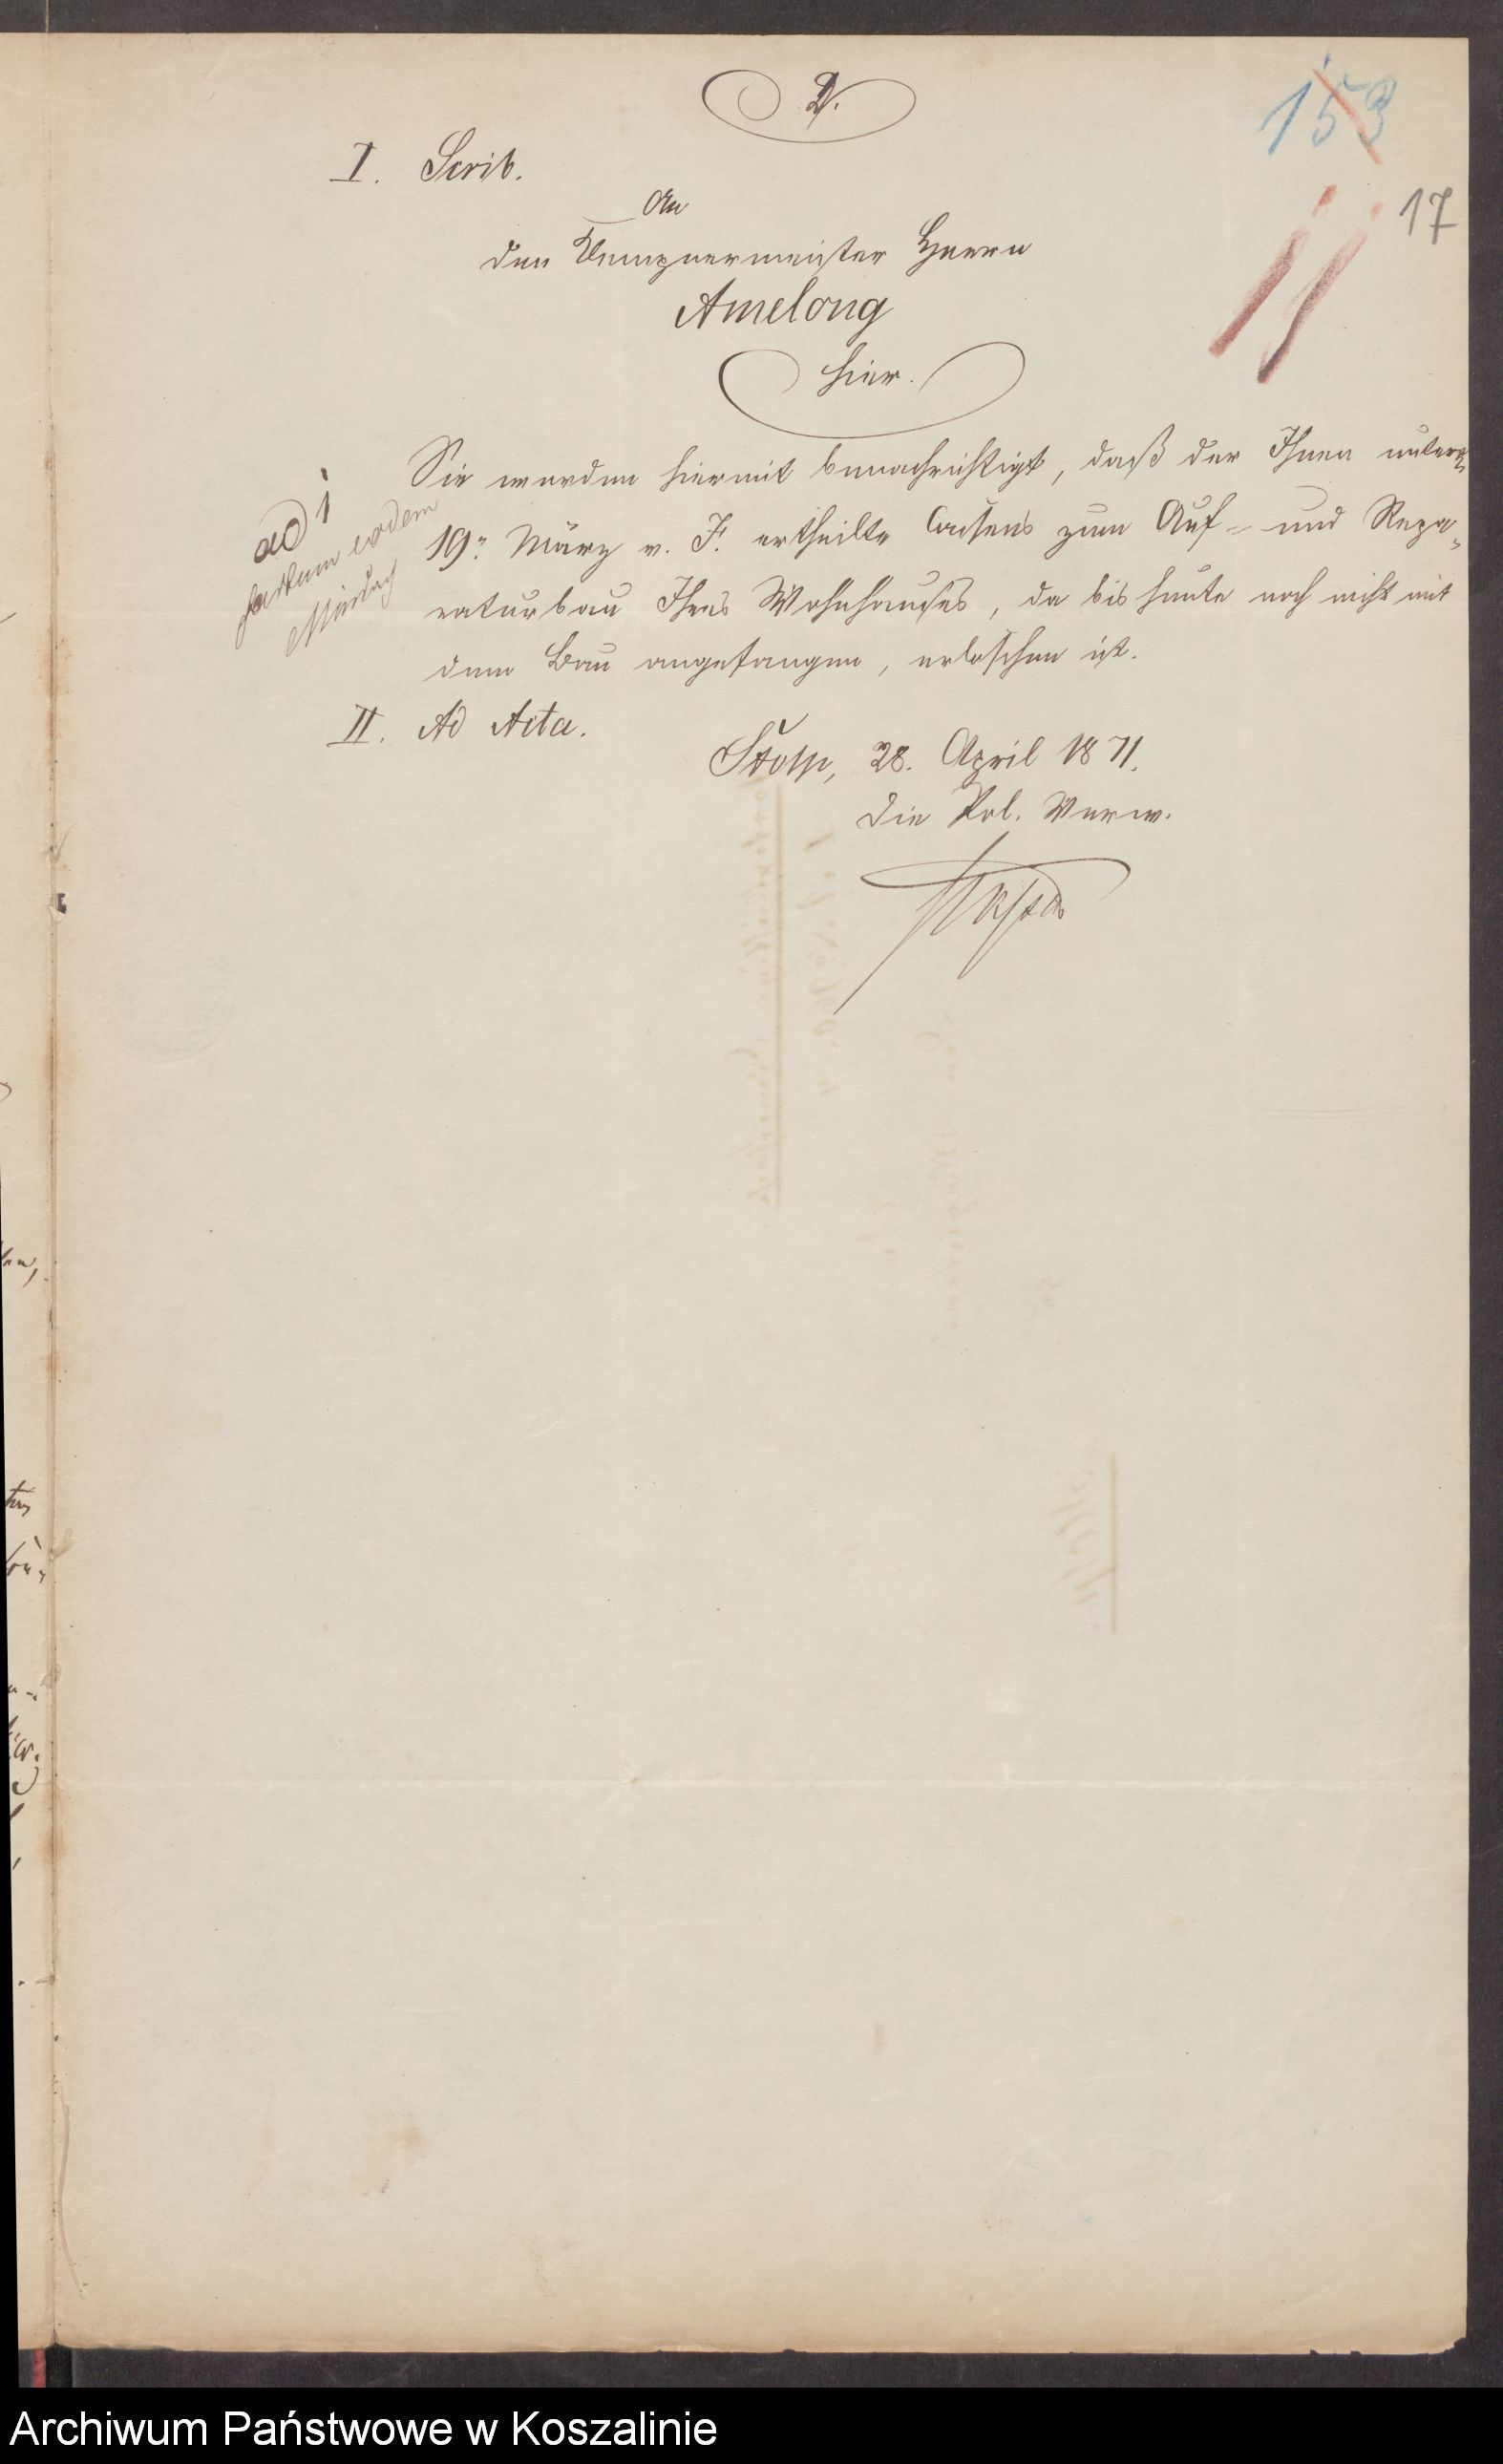 V.
153
17
I. Scrib.
An
den Klempnermeister Herrn
Amelong
hier.
Sie werden hiermit benachrichtigt, daß der Ihnen unterm
19t März v. J. ertheilte Consens zum Auf- und Repa-
raturbau Ihres Wohnhauses, da bis heute noch nicht mit
dem Bau angefangen, erloschen ist.
ad 1
factum eodem
II. Ad Acta.
Stolp, 28. April 1871.
Die Pol. Verw.
Archiwum Państwowe w Koszalinie